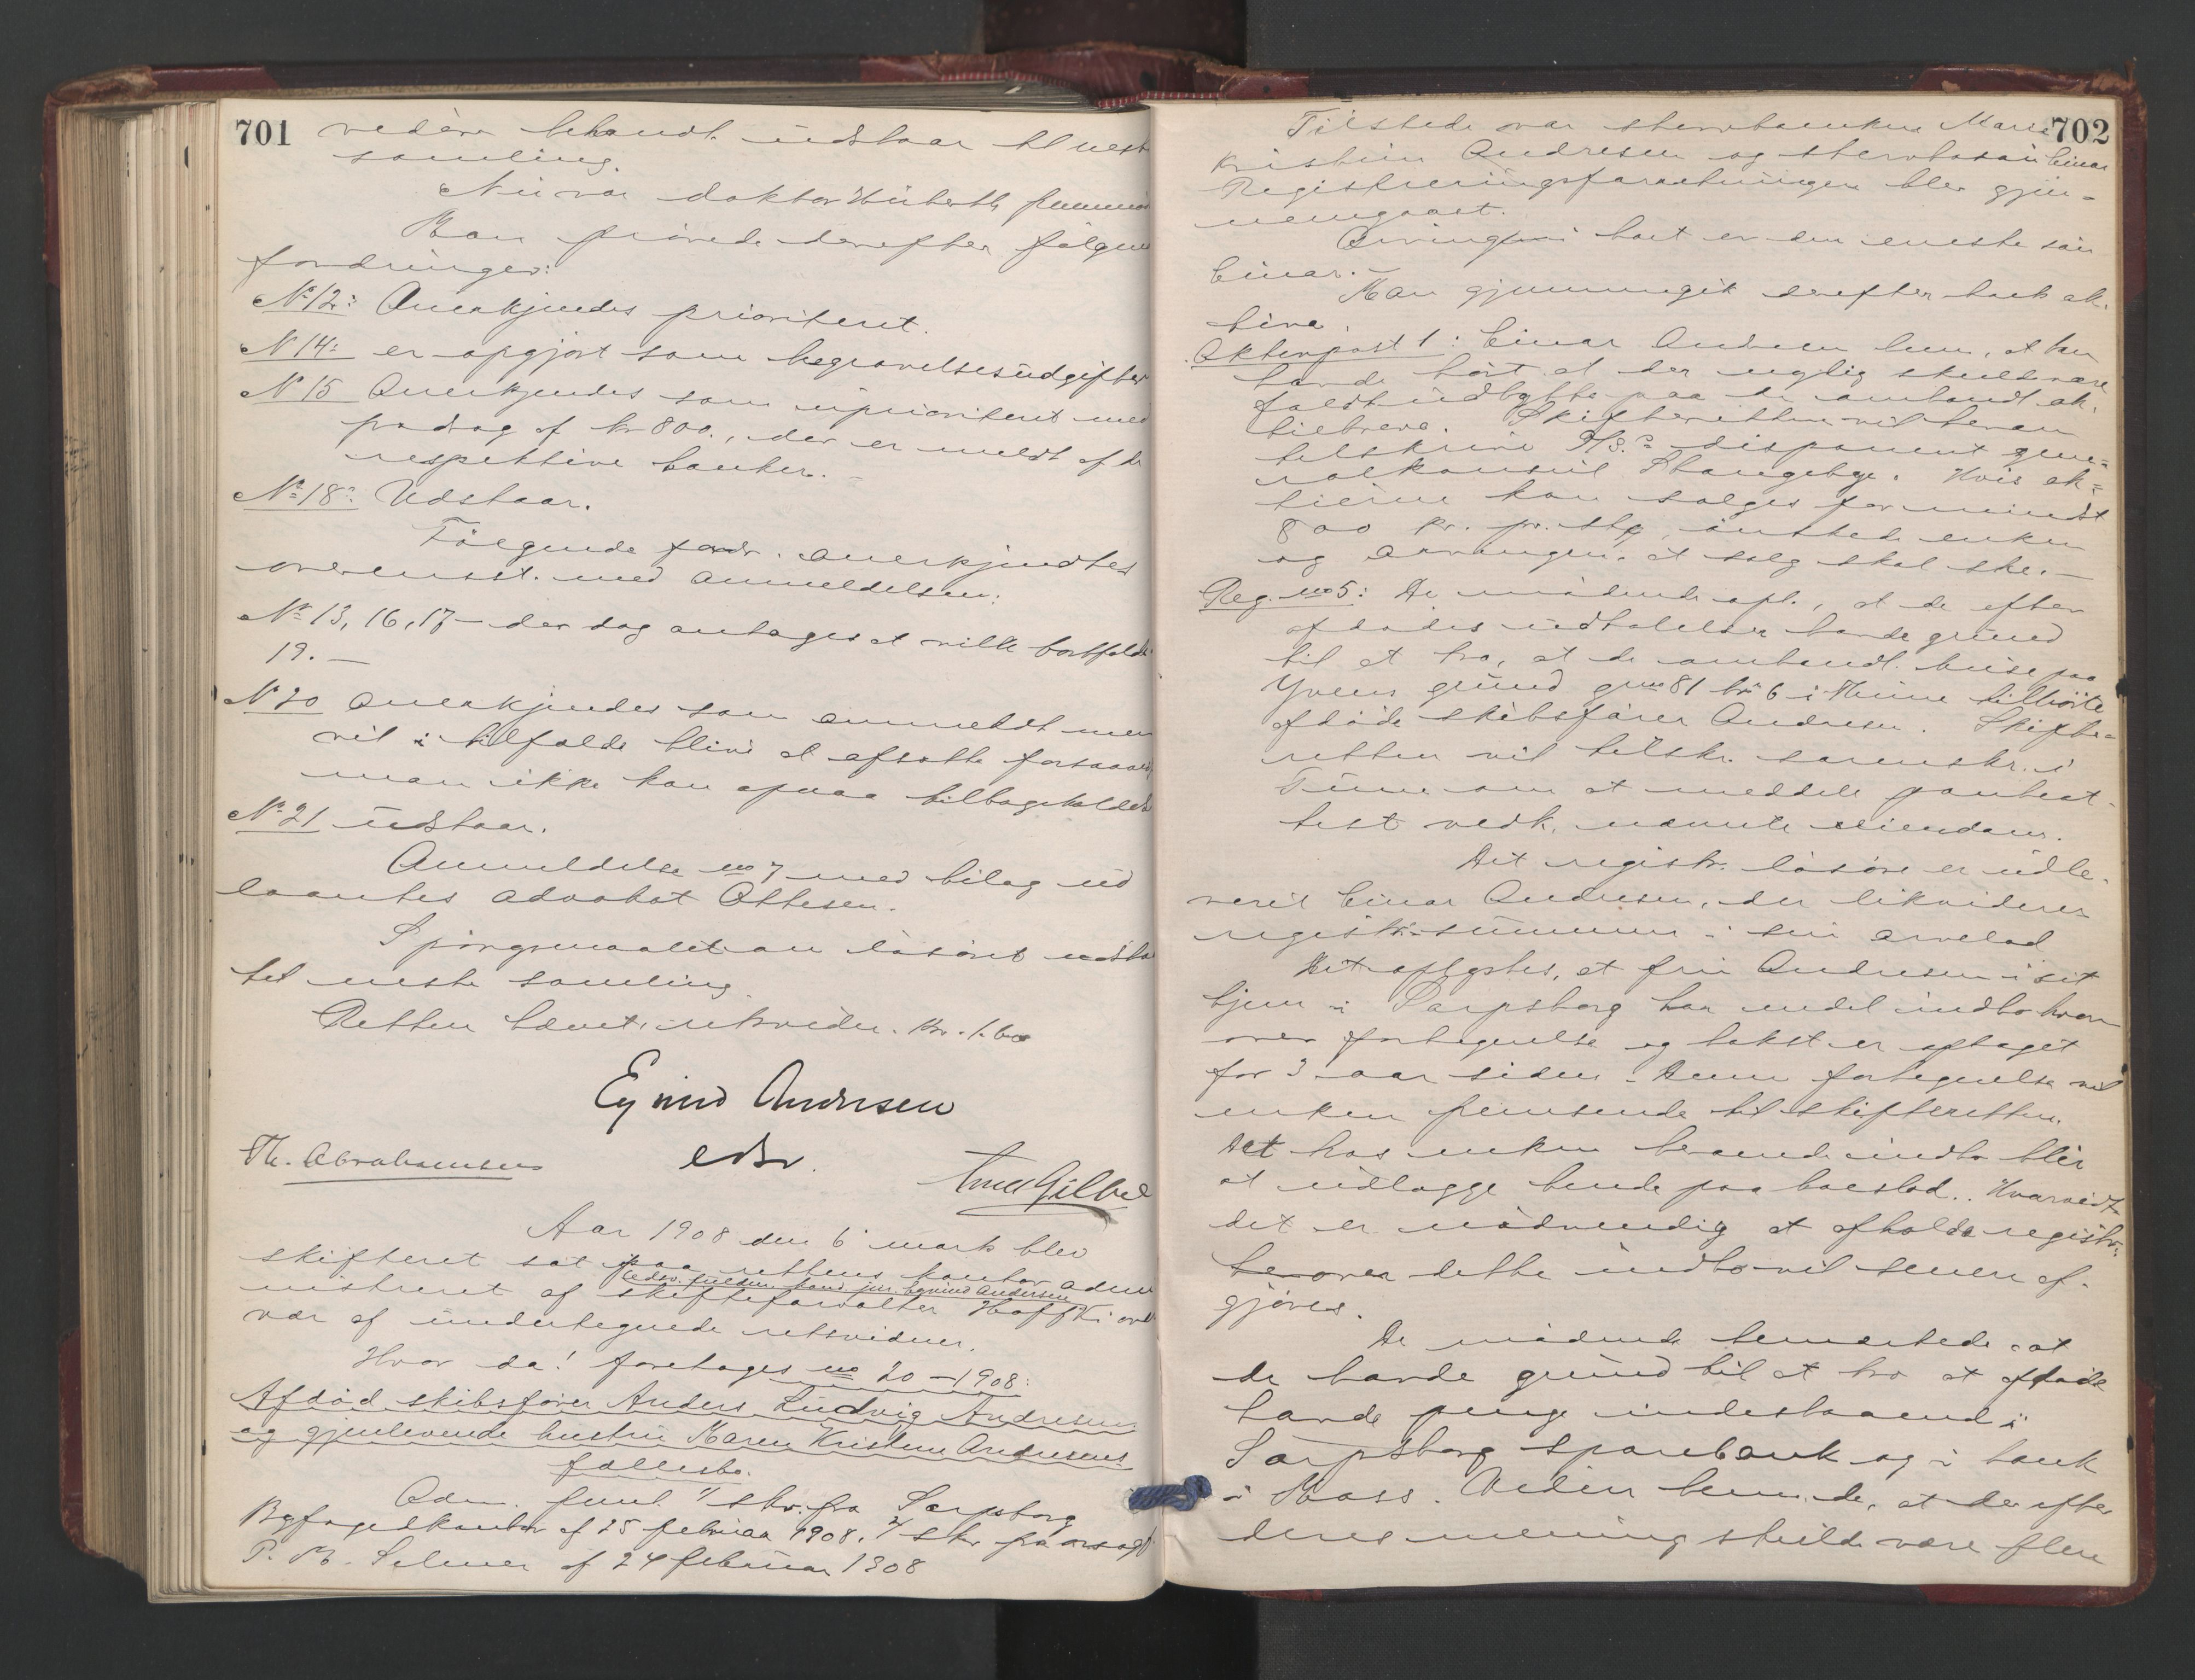 701
videre behandl. udstaar til næste
samling.
Nu var doktor Huberth fremmø
Man prøvede derefter følgen
fordringer:
No 12: Anerkjendes prioritert.
N 14: er opgjort som begravelsesudgifter
N 15 Anerkjendes som uprioritert med
fradrag af kr 800., der er meldt af de
respektive banker. -
No 18: Udstaar.
Følgende fordr. anerkjendtes
overensst. med anmeldelsen:
No 13, 16, 17 - der dog antages at ville bortfalde
19. -
N 20 anerkjendes som anmeldt men
vil i tilfælde blive at afsætte forsaavidt
man ikke kan opnaa tilbageholdels
No 21 udstaar.
Anmeldelse no 7 med bilag ud
laantes advokat Ottesen.
Spørgsmaalet om løsøret udstaa
til næste samling.
Retten hævet. retsvidn. kr. 1.60
Eyvind Andresen
edsv.
Th. Abrahamsen
Aar 1908 den 6 marts blev
skifteret sat paa rettens kontor adm
nistreret af skifteforvalter Hoff ov
edsv. fuldm. kand. jur. Eyvind Andersen
vær af undertegnede retsvidner.
Hvor da! foretages no 20 - 1908:
Afdød skibsfører Anders Ludvig Andresen
og gjenlevende hustru Maren Kristine Andresens
fællesbo.
Adm. freml. 1/ skr. fra Sarpsborg
Byfogedkontor af 25 februar 1908. 2/ skr fra orsagf
P. M. Selmer af 24 februar 1908
702
Tilstede var stervboenken Maren
Kristine Andresen og stervbosøn Einar
Registreringsforretningen blev gjen-
nemgaaet.
Arving i boet er den eneste søn
Einar. -
Man gjennemgik derefter boets ak-
tiva.
Aktivpost 1: Einar Andresen bem., at han
havde hørt at der nylig skulde være
faldt udbytte paa de omhandl. ak-
tiebreve. Skifteretten vil herom
tilskrive A/S.s disponent gene-
ralkonsul Stangebye. Hvis ak-
tierne kan sælges for mindst
800 kr. pr. stk, ønskede enken
og arvingen. at salg skal ske. -
Reg. no 5: De mødende opl., at de efter
afdødes udtalelser havde grund
til at tro, at de omhandl. huse paa
Yvens grund gno 81 bno 6 i Thune tilhørte
afdøde skibsfører Andresen. Skifte-
retten vil tilskr. sorenskr. i
Tune om at meddele panteat-
test vedk. nævnte eiendom.
Det registr. løsøre er udle-
veret Einar Andresen, der likviderer
registr.summen i sin arvelod
Det oplystes, at fru Andresen i sit
hjem i Sarpsborg har endel indbo hvor
over fortegnelse og takst er optaget
for 3 aar siden. Denne fortegnelse vil
enken fremsende til skifteretten.
Det hos enken beroende indbo blir
at udlægge hende paa boeslod. Hvorvidt
det er nødvendig at afholde registr.
over dette indbo vil senere af-
gjøres.
De mødende bemærkede, at
de havde grund til at tro at afdøde
havde penge indestaaende i
Sarpsborg sparebank og i bank
i Moss. Videre bem. de, at der efter
deres mening skulde være flere